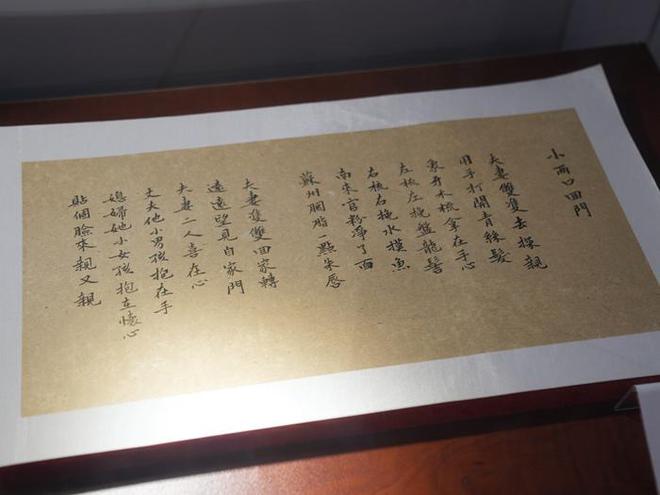 小两口回門
夫妻雙雙去探親
用手打開青絲髮
象牙木梳拿在手心
左梳左挽盤龍髻
右梳右挽水摸魚
南來官粉淨了面
蘇州胭脂一點朱唇
夫妻雙雙回家轉
遠遠望見自家門
夫妻二人喜在心
丈夫他小男孩抱在手
媳婦她小女孩抱在懷心
貼個臉來親又親